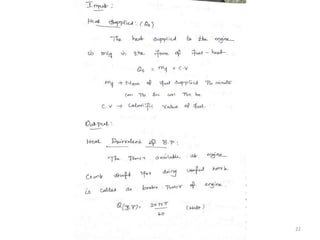 Input :
Heat Supplied : (Qs)
The heat Supplied to the engine
is only in the form of fuel - heat.
Qs = mf × C.V
mf → Mass of fuel supplied Per minute
C.V → Calorific Value of fuel.
Output :
Heat Equivalent of B.P :
The Power available at engine
Crank shaft for doing useful work
is called as brake Power of engine.
Q(B.P) = 2πNT
60 (Watts)
22